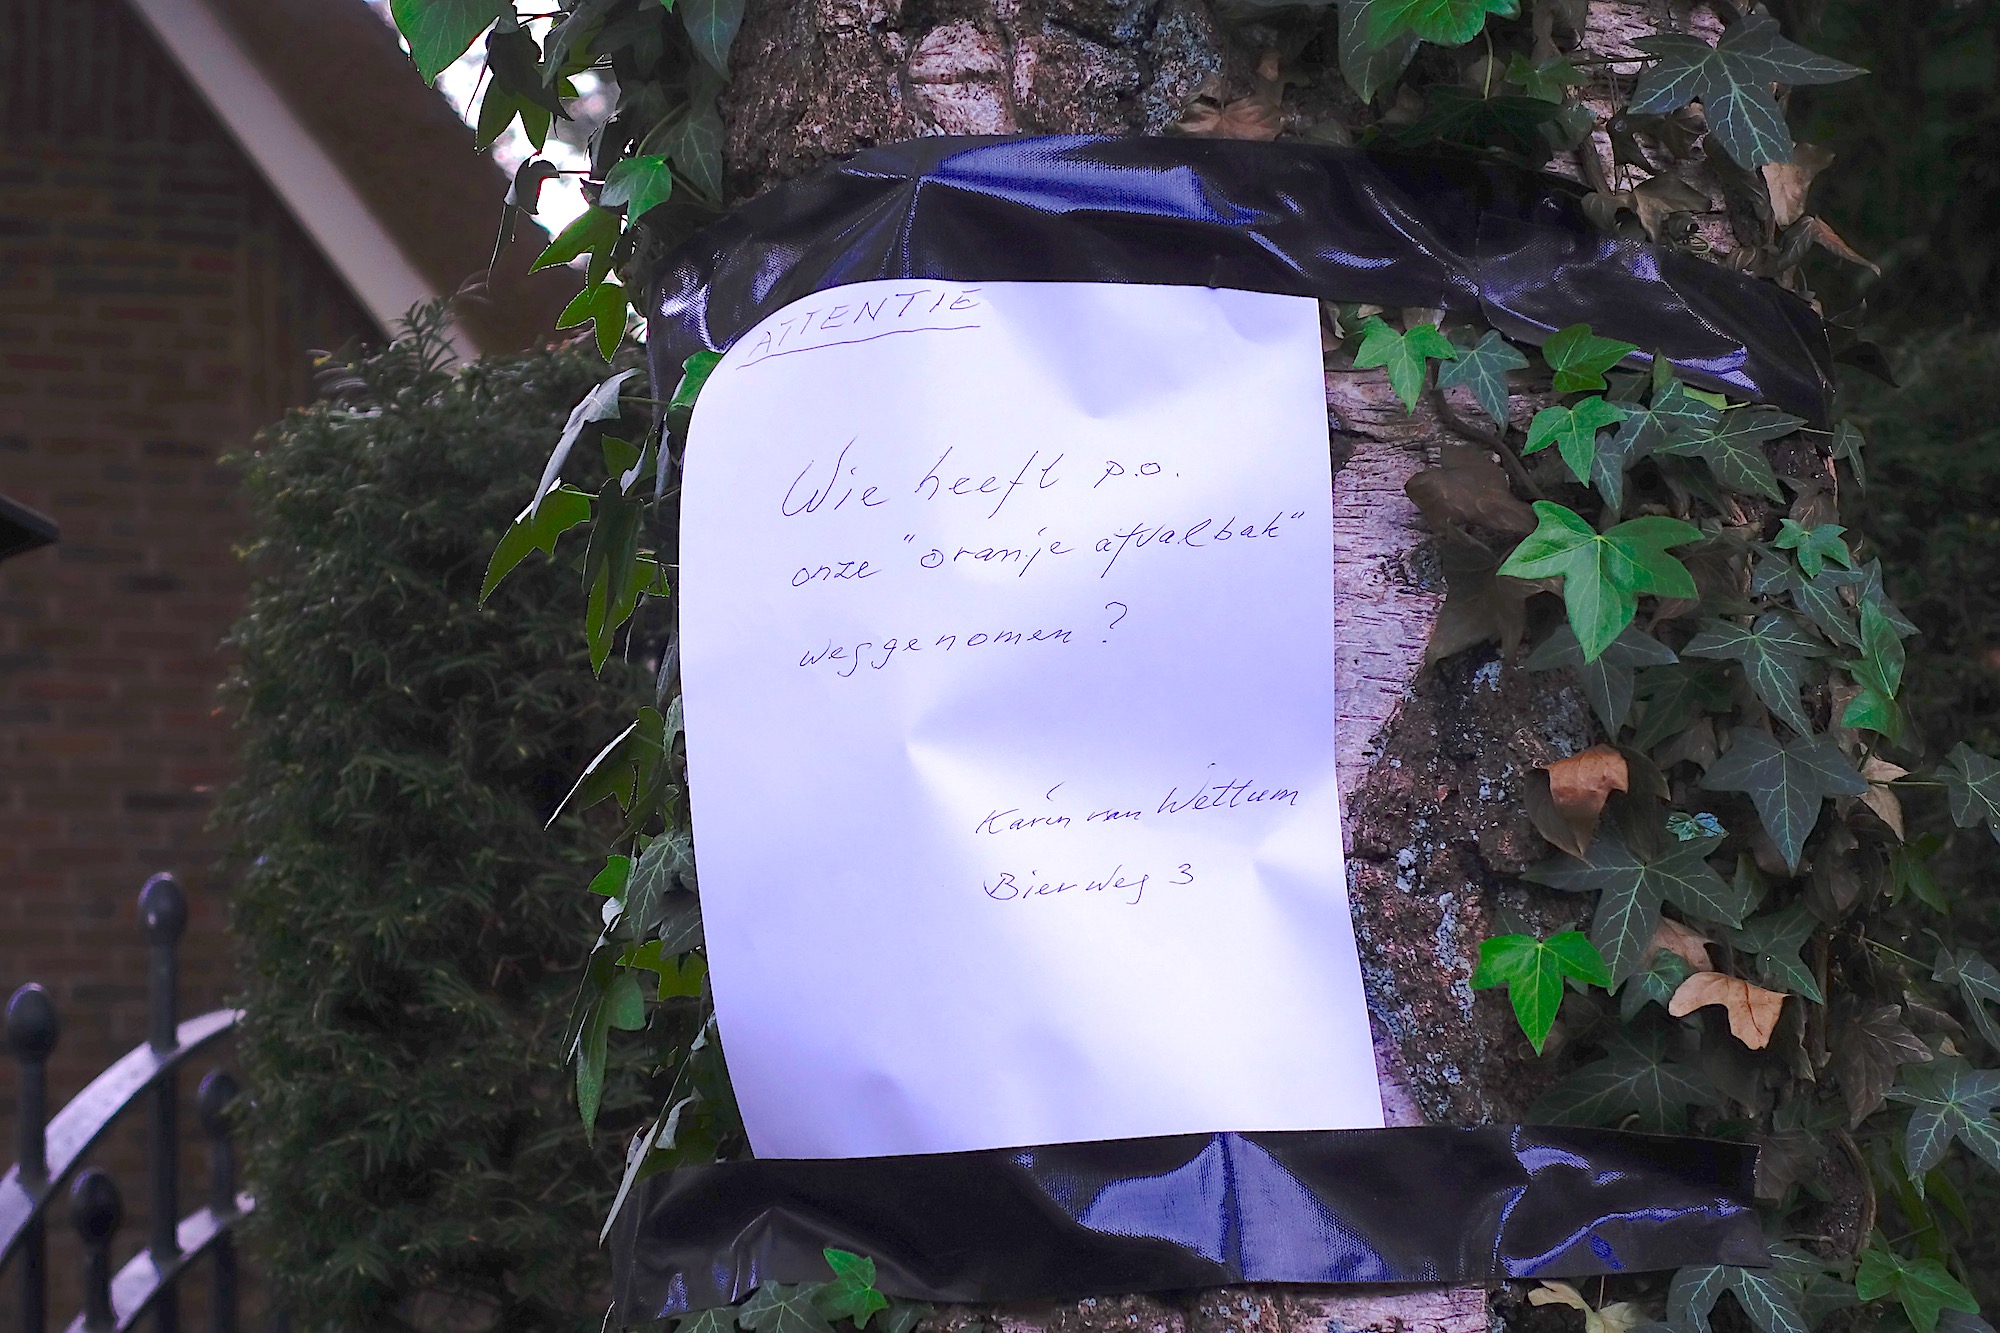 ATTENTIE
Wie heeft p.o.
onze "oranje afvalbak"
weggenomen?
Karin van Wettum
Bierweg 3